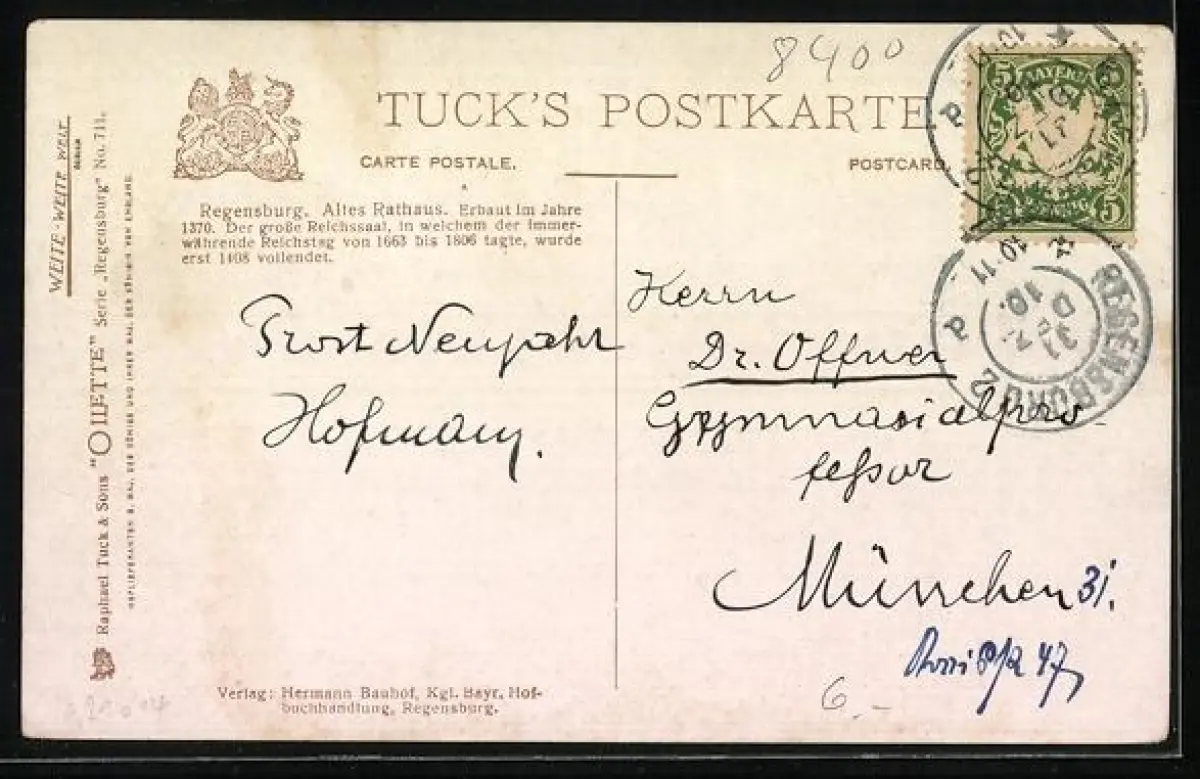 8400
TUCK'S POSTKARTE
CARTE POSTALE.
POSTCARD.
Regensburg. Altes Rathaus. Erbaut im Jahre
1370. Der große Reichssaal, in welchem der immer-
währende Reichstag von 1663 bis 1806 tagte, wurde
erst 1408 vollendet.
Prost Neujahr
Hofmann.
Verlag: Hermann Bauhof, Kgl. Bayr. Hof-
buchhandlung, Regensburg.
Herrn
Dr. Offner
Gymnasialpro-
feßor
München 31.
47
6.-
BAYERN
5 5
5
REGENSBURG 2
31 D
10.
10-11
WEITE-WEITE WELT
BERLIN
Raphael Tuck & Sons "OILETTE" Serie „Regensburg" No. 711.
HOFLIEFERANTEN S. MAJ. DES KÖNIGS UND IHRER MAJ. DER KÖNIGIN VON ENGLAND.